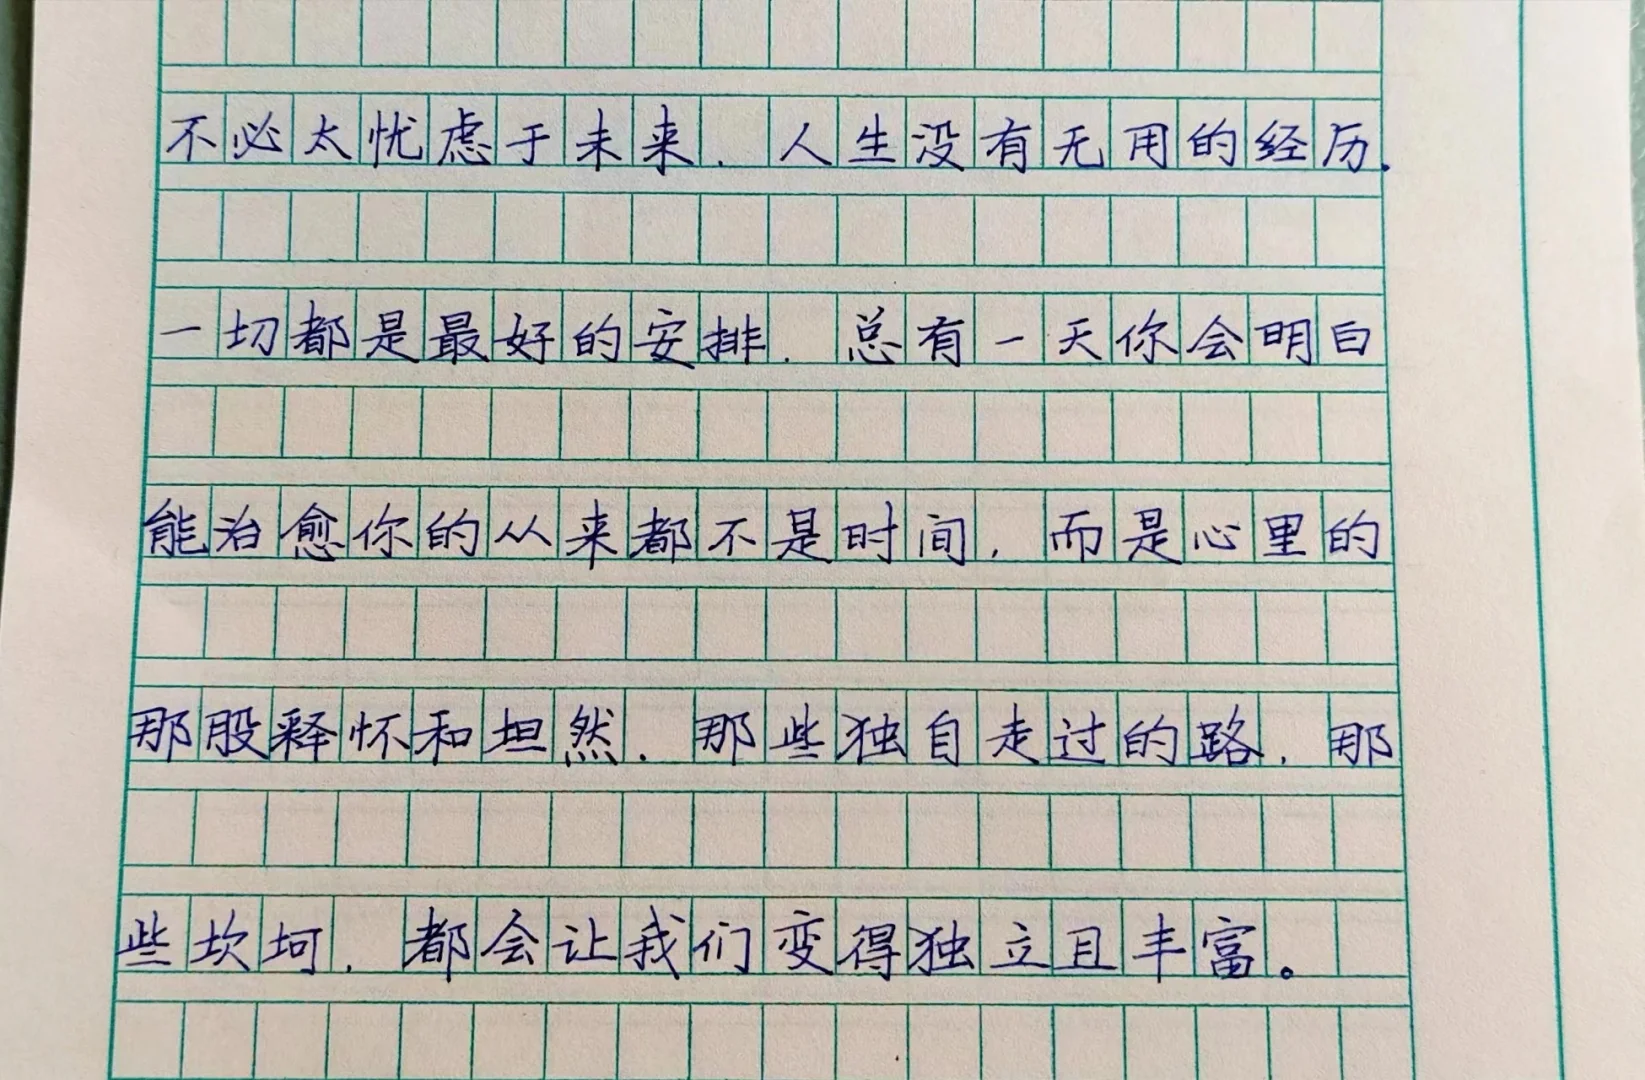 不必太忧虑于未来，人生没有无用的经历，
一切都是最好的安排，总有一天你会明白
能治愈你的从来都不是时间，而是心里的
那股释怀和坦然，那些独自走过的路，那
些坎坷，都会让我们变得独立且丰富。